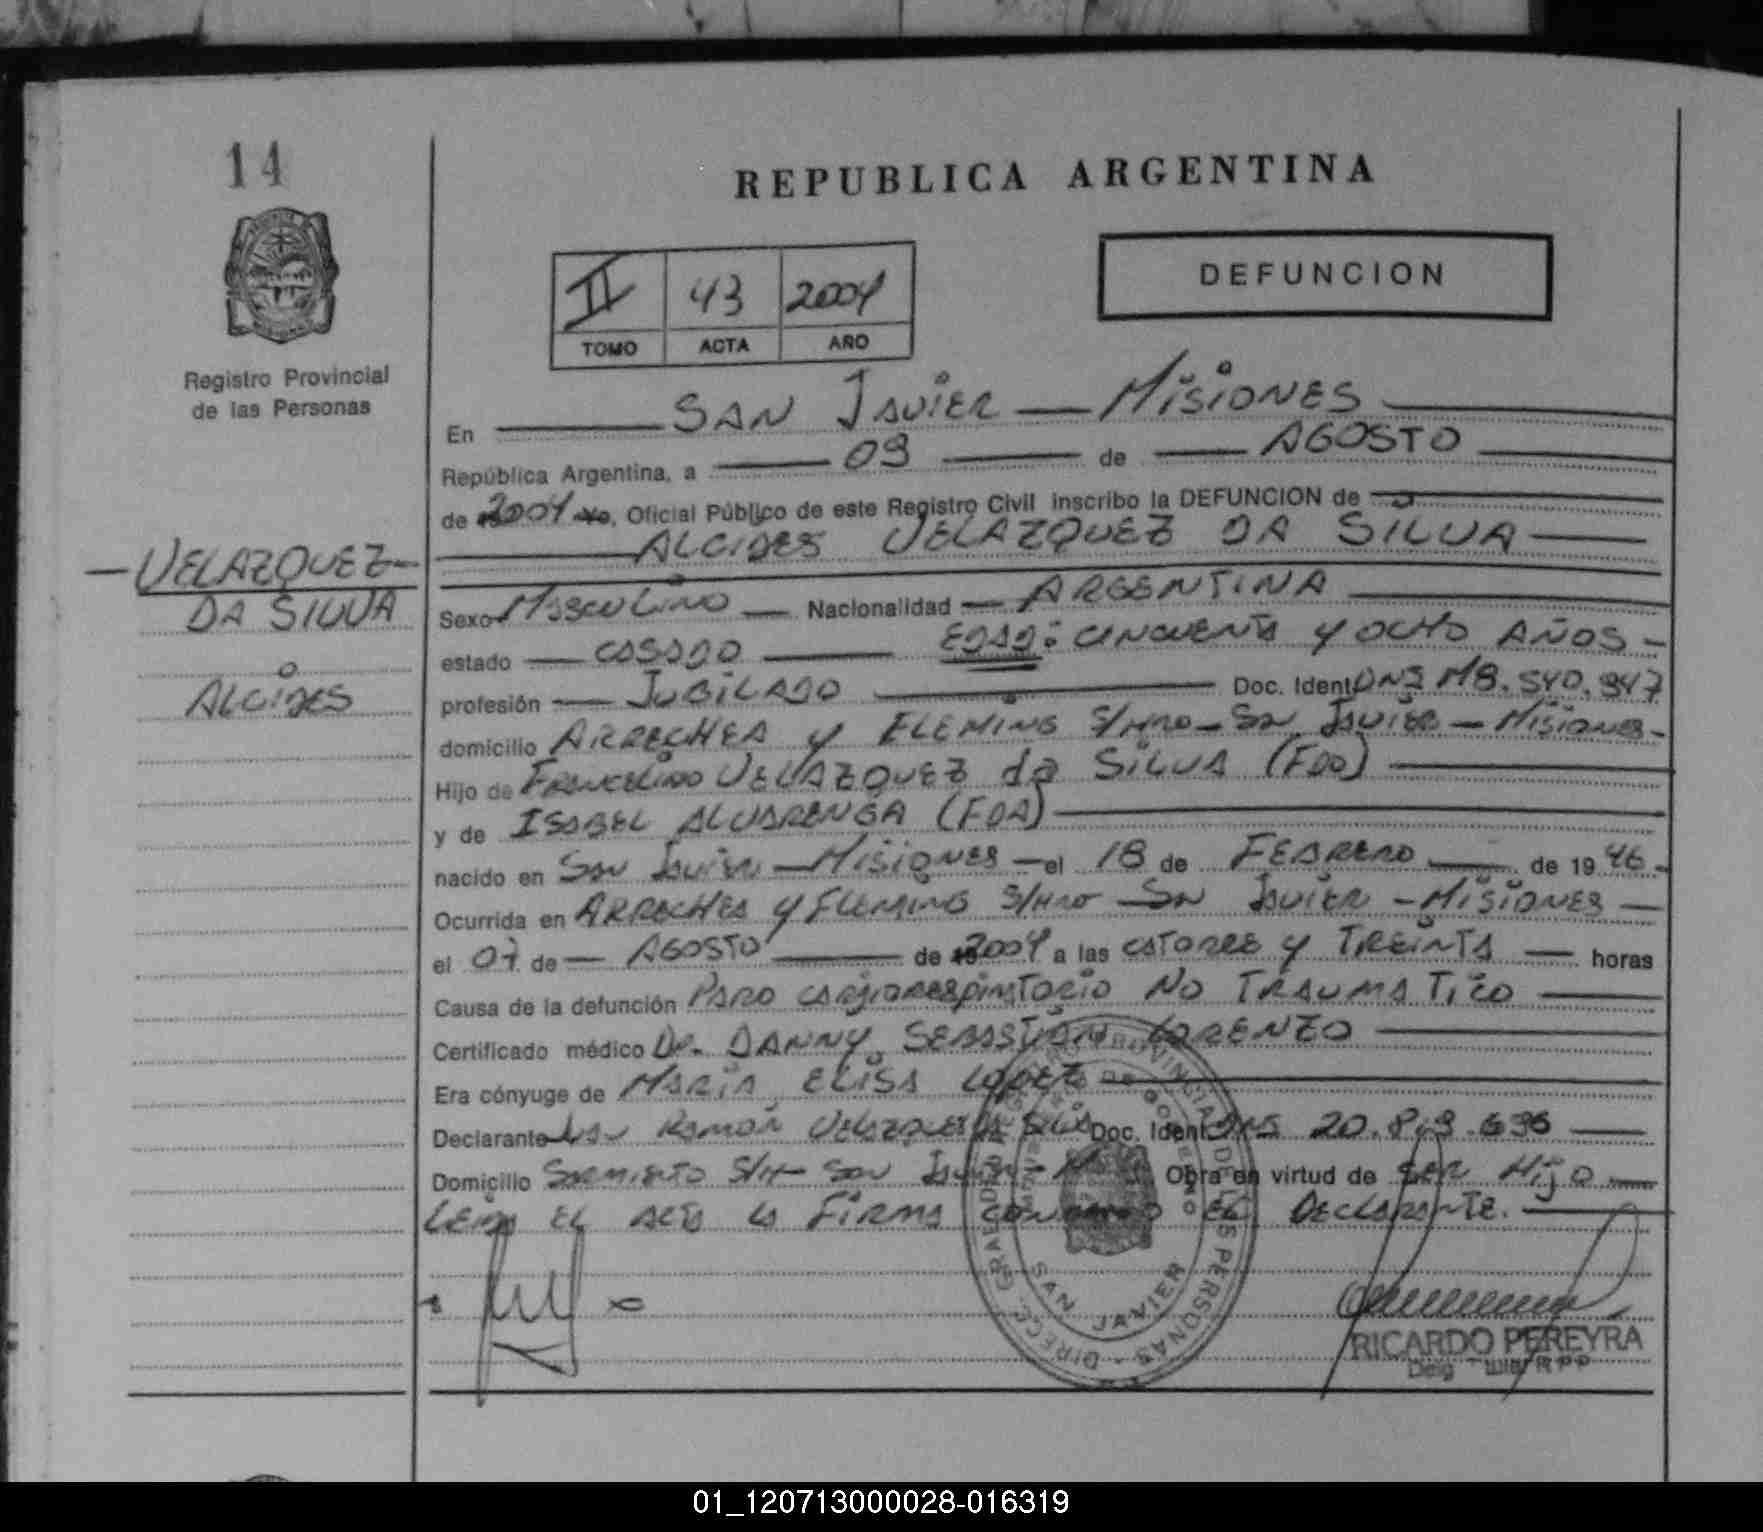 14
REPUBLICA ARGENTINA
DEFUNCION
II 43 2004
TOMO ACTA AÑO
Registro Provincial
de las Personas
En SAN JAVIER — MISIONES
República Argentina, a 09 de AGOSTO
de 2004 Yo, Oficial Público de este Registro Civil inscribo la DEFUNCION de
ALCIDES VELAZQUEZ DA SILVA
— VELAZQUEZ —
DA SILVA
ALCIDES
Sexo MASCULINO — Nacionalidad — ARGENTINA
estado — CASADO — EDAD: CINCUENTA y OCHO AÑOS —
profesión — JUBILADO — Doc. Ident DNI M8.540.947
domicilio ARRECHEA y FLEMING S/Nro — SAN JAVIER — MISIONES —
Hijo de FRANCELINO VELAZQUEZ da SILVA (FDO)
y de ISABEL ALVARENGA (FDA)
nacido en SAN JAVIER — MISIONES — el 18 de FEBRERO — de 19 46 —
Ocurrida en ARRECHEA y FLEMING S/Nro — SAN JAVIER — MISIONES —
el 07 de — AGOSTO — de 2004 a las CATORCE y TREINTA — horas
Causa de la defunción PARO CARDIORESPIRATORIO NO TRAUMATICO —
Certificado médico Dr. DANNY SEBASTIAN LORENZO
Era cónyuge de MARIA ELISA LOPEZ
Declarante RAMON VELAZQUEZ DA SILVA Doc. Ident DNI 20.8 9.696 —
Domicilio SARMIENTO S/N — SAN JAVIER — Obra en virtud de SER HIJO —
LEIDA EL ACTA LA FIRMA CONMIGO EL DECLARANTE. —
DIRECC. GRAL. DEL REGISTRO PROVINCIAL DE LAS PERSONAS
SAN JAVIER
RICARDO PEREYRA
01_120713000028-016319